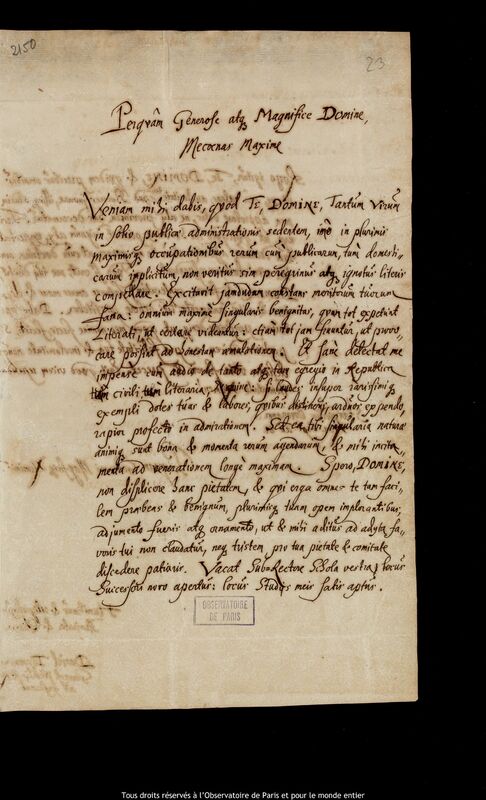 2150
23
Perquàm Generose atq3 Magnifice Domine,
Mecœnas Maxime
Veniam mihi dabis, quod Te, Domine, Tantum Virum
in solio publicæ administrationis sedentem, imò in plurimis
maximisq3 occupationibus rerum cùm publicarum, tùm domesti-
carum implicitum, non veritus sim peregrinus atq3 ignotus literis
compellare. Excitavit jamdudum constans meritorum tuorum
fama: omnium maxime singularis benignitas, quam tot experiuntur
Literati, ut certare videantur: etiam tot jam fruuntur, ut provo-
care possint ad honestam æmulationem. Et sane delectat me
impense cùm audio de tanto atq3 tam egregio in Republica
tàm civili tàm literaria, si laudes insuper rarissimiq3
exempli dotes tuas & labores, quibus distineris, arduos expendo,
rapior profectò in admirationem. Sed ea tibi singularia naturæ
animiq3 sunt bona & momenta rerum agendarum, & mihi incita-
menta ad venerationem longe maximam. Spero, Domine,
non displicere hanc pietatem, & qui erga omnes te tam faci-
lem præbens & benignum, plurimisq3 tuam opem implorantibus,
adjumento fueris atq3 ornamento, ut & mihi aditus ad adyta fa-
voris tui non claudatur, neq3 tristem pro tua pietate & comitate
discedere patiaris. Vacat Sub-Rectore Schola vestra, locus
Successori novo apertus: locus Studijs meis satis aptus.
OBSERVATOIRE
DE PARIS
Tous droits réservés à l'Observatoire de Paris et pour le monde entier